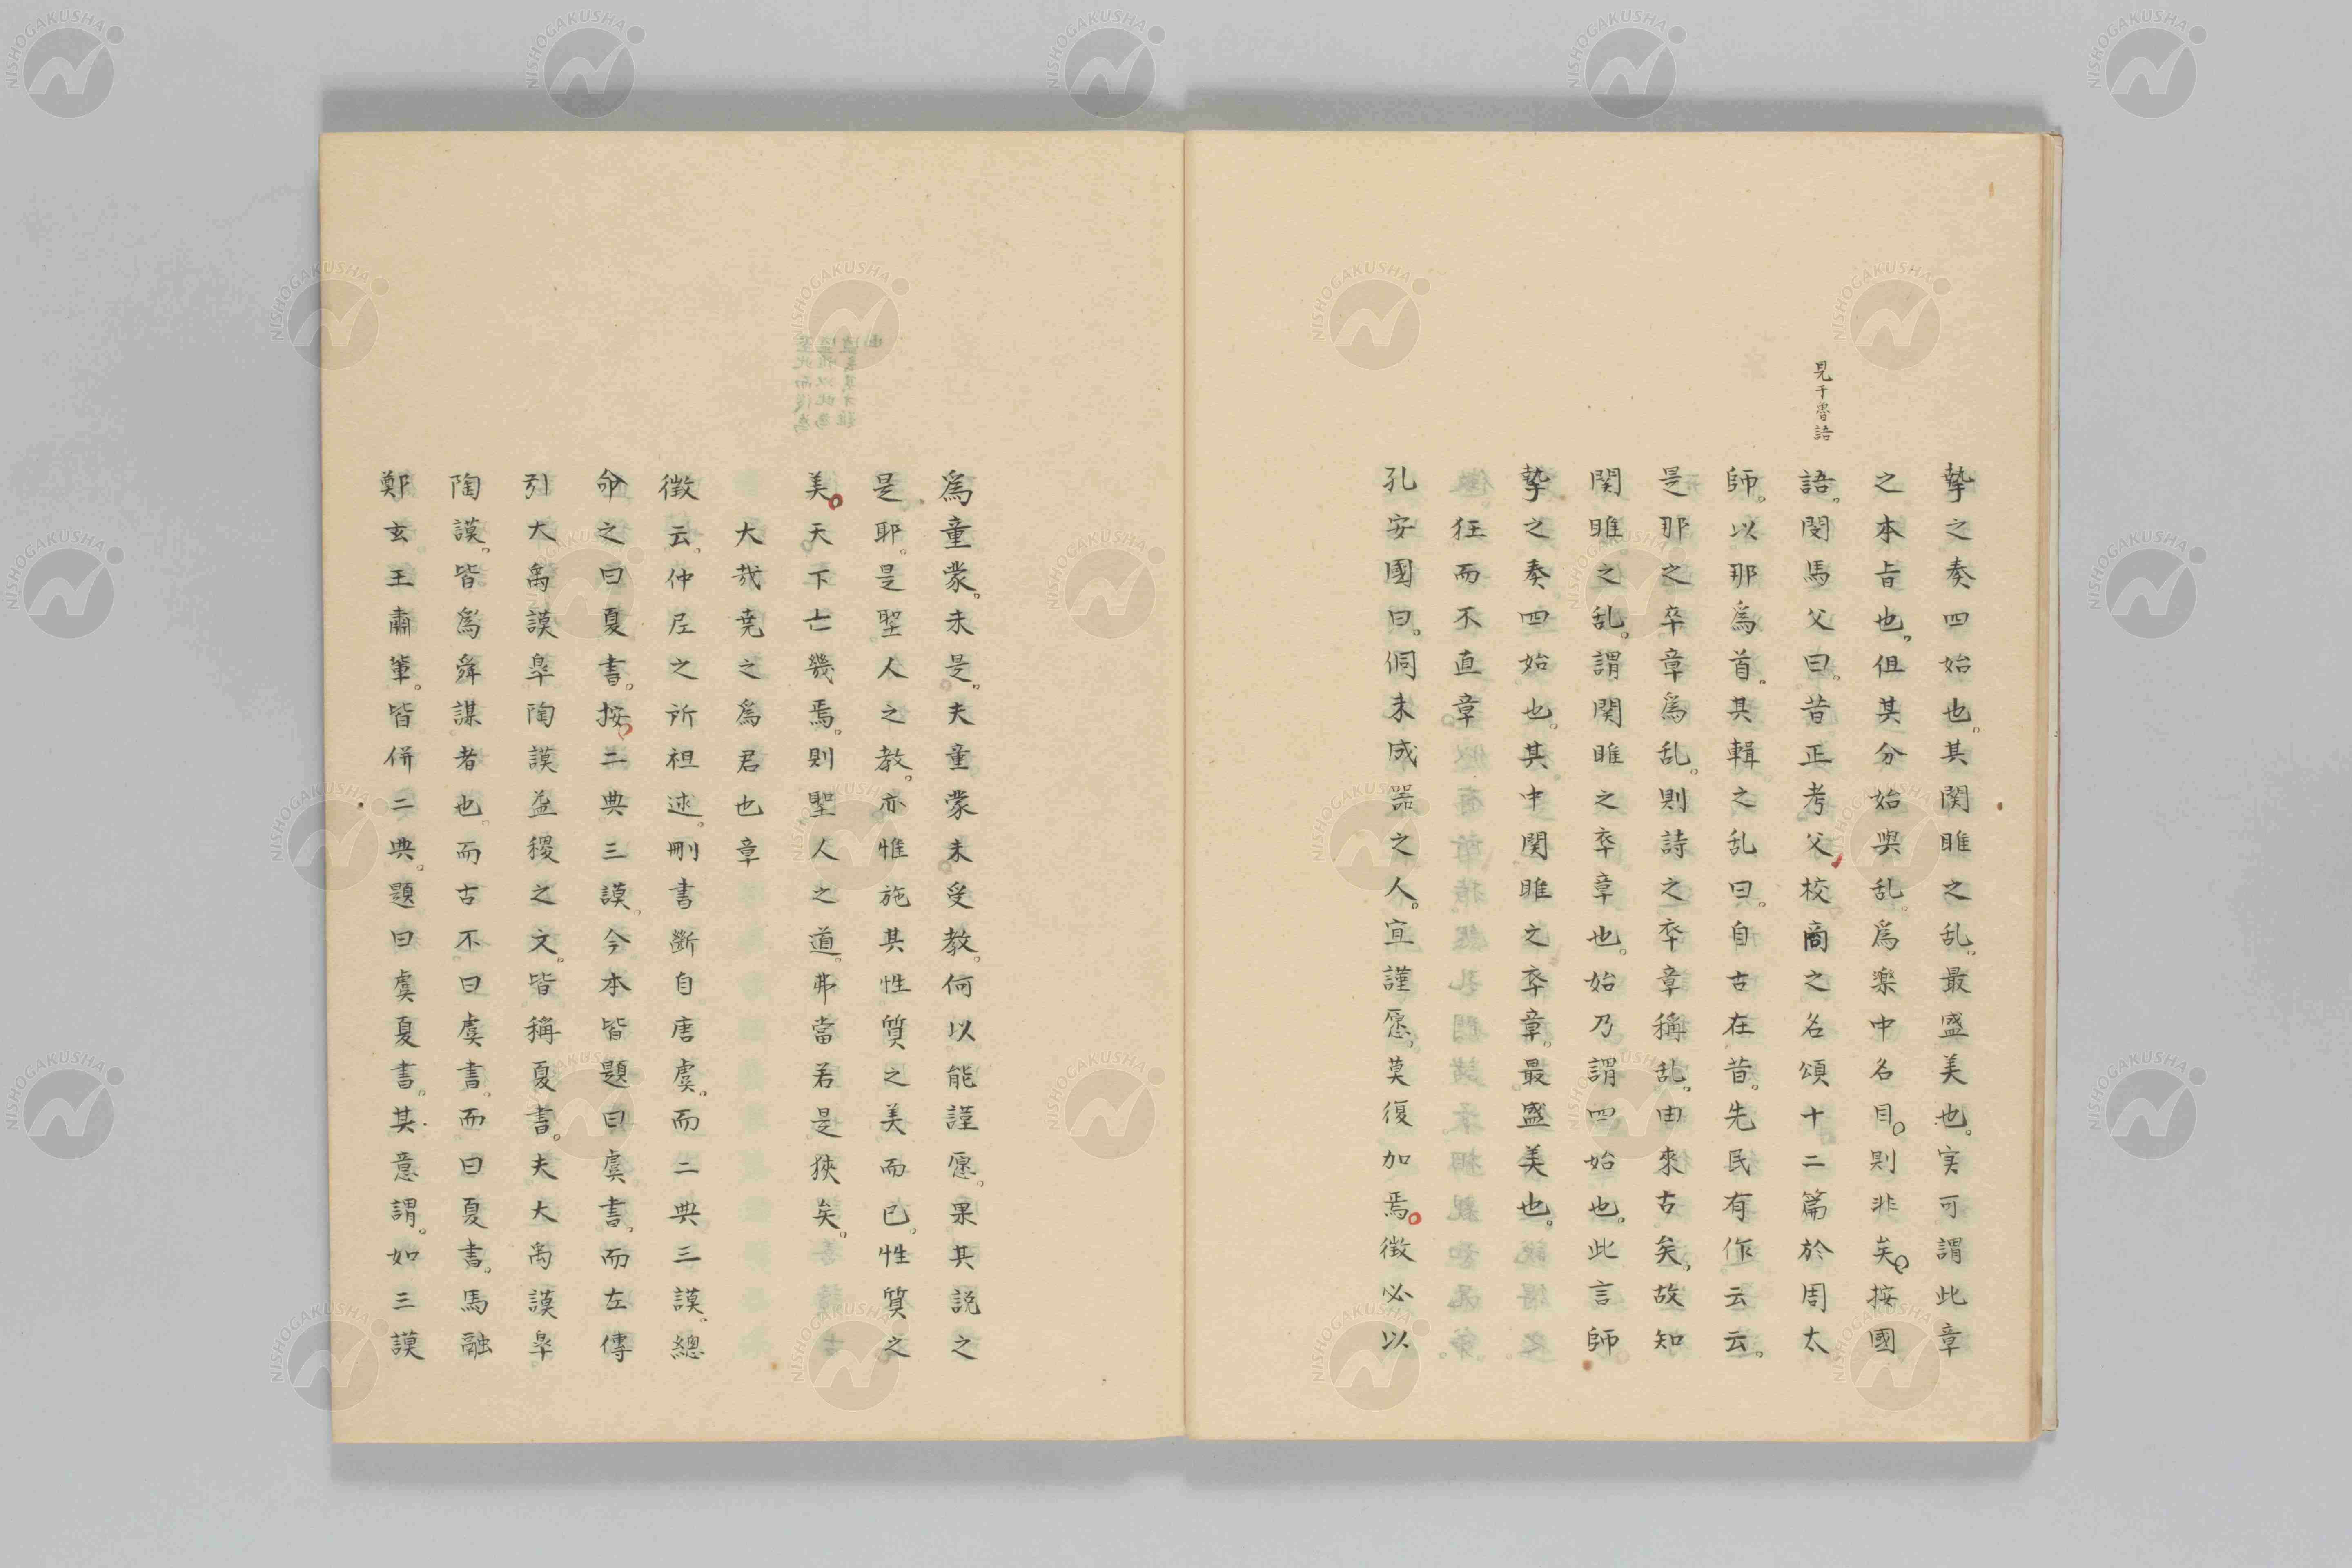 見于魯語
摯之奏四始也。其関雎之乱。最盛美也。実可謂此章
之本旨也。但其分始與乱。為楽中名目。則非矣。按國
語。閔馬父曰。昔正考父校商之名頌十二篇於周太
師。以那為首。其輯之乱曰。自古在昔。先民有作云云。
是那之卒章為乱。則詩之卒章稱乱。由來古矣。故知
関雎之乱。謂関雎之卒章也。始乃謂四始也。此言師
摯之奏四始也。其中関雎之卒章。最盛美也。
狂而不直章
孔安國曰。侗未成器之人。宜謹愿。莫復加焉。徴必以
爲童蒙。未是。夫童蒙未受教。何以能謹愿。果其説之
是耶。是聖人之教。亦惟施其性質之美而已。性質之
美。天下亡幾焉。則聖人之道。弗當若是狹矣。
大哉尭之為君也章
徴云。仲尼之所祖述。刪書斷自唐虞。而二典三謨。總
命之曰夏書。按二典三謨。今本皆題曰虞書。而左傳
引大禹謨皐陶謨益稷之文。皆稱夏書。夫大禹謨皐
陶謨。皆爲舜謀者也。而古不曰虞書。而曰夏書。馬融
鄭玄王肅輩。皆併二典。題曰虞夏書。其意謂。如三謨
NISHOGAKUSHA